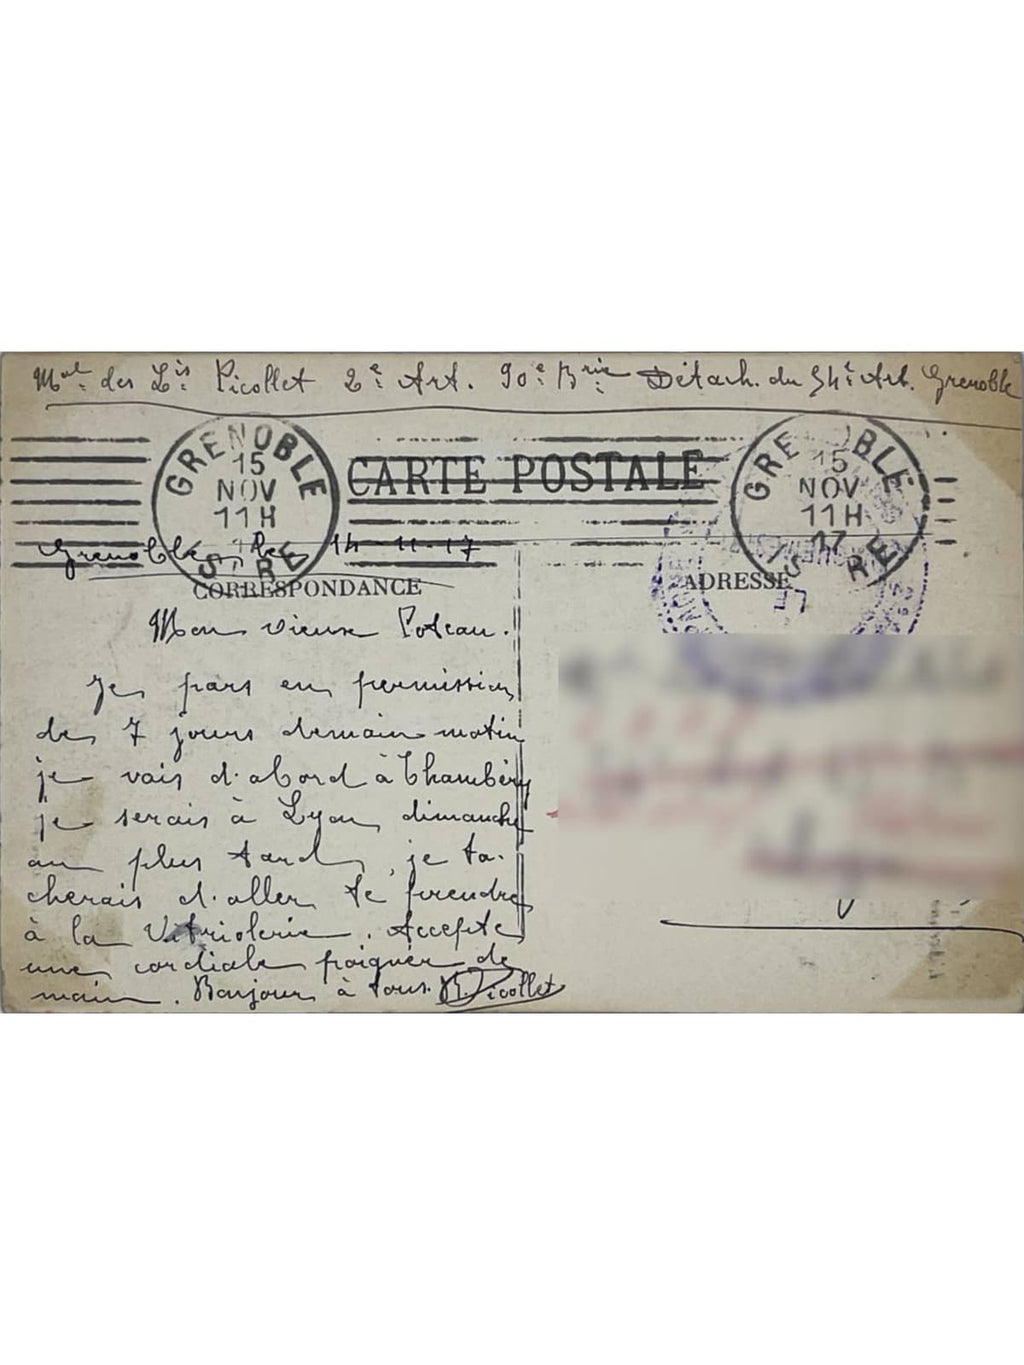 Mal. des Lis Picollet 2e Art. 90e Brie Détach. du 54e Art. Grenoble
GRENOBLE
15
NOV
11H
ISÈRE
CARTE POSTALE
GRENOBLE
15
NOV
11H
17
ISÈRE
Grenoble, le 14-11-17
CORRESPONDANCE
ADRESSE
Mon vieux Poteau.
Je pars en permission
de 7 jours demain matin
je vais d'abord à Chambéry
je serais à Lyon dimanche
au plus tard, je ta-
cherais d'aller te prendre
à la Vitriolerie. Accepte
une cordiale poignée de
main. Bonjour à tous. Picollet